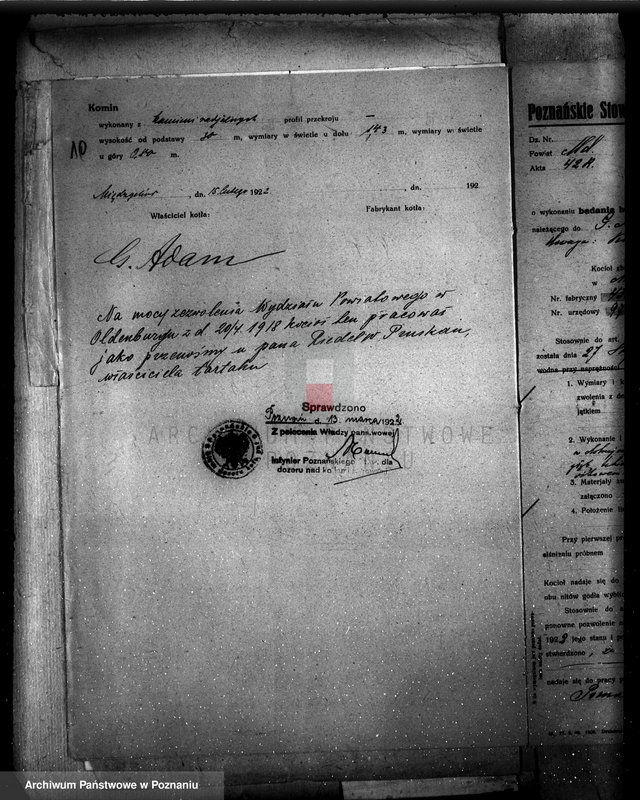 Komin
wykonany z kamieni radjalnych profil przekroju —
wysokość od podstawy 30 m, wymiary w świetle u dołu 1,43 m, wymiary w świetle
10
u góry m.
dn. 15 lutego 1922 , dn. 192
Właściciel kotła: Fabrykant kotła:
G. Adam
Na mocy zezwolenia Wydziału Powiatowego w
Oldenburgu z d. 20/4 1918 kocioł ten pracował
jako przenośny u pana Riedel w
właściciela tartaku
Sprawdzono
Poznań d. 13. marca 192
Z polecenia Władzy państwowej
Inżynier Poznańskiego dla
dozoru nad
Poznańskie Stow
Dz. Nr.
Powiat
Akta 42
o wykonaniu badania
należącego do
Kocioł
w
Nr. fabryczny
Nr. urzędowy
Stosownie do art.
została dnia 27
wodna przy naprężności
1. Wymiary i
zwolenia z
jątkiem
2. Wykonanie i
3. Materjały
załączono
4. Położenie
Przy pierwszej
ciśnieniu próbnem
Kocioł nadaje się do
obu nitów godła
Stosownie do
ponowne pozwolenie
192 jego stanu i
stwierdzono,
nadaje się do pracy
ARCHIWUM PAŃSTWOWE
Archiwum Państwowe w Poznaniu